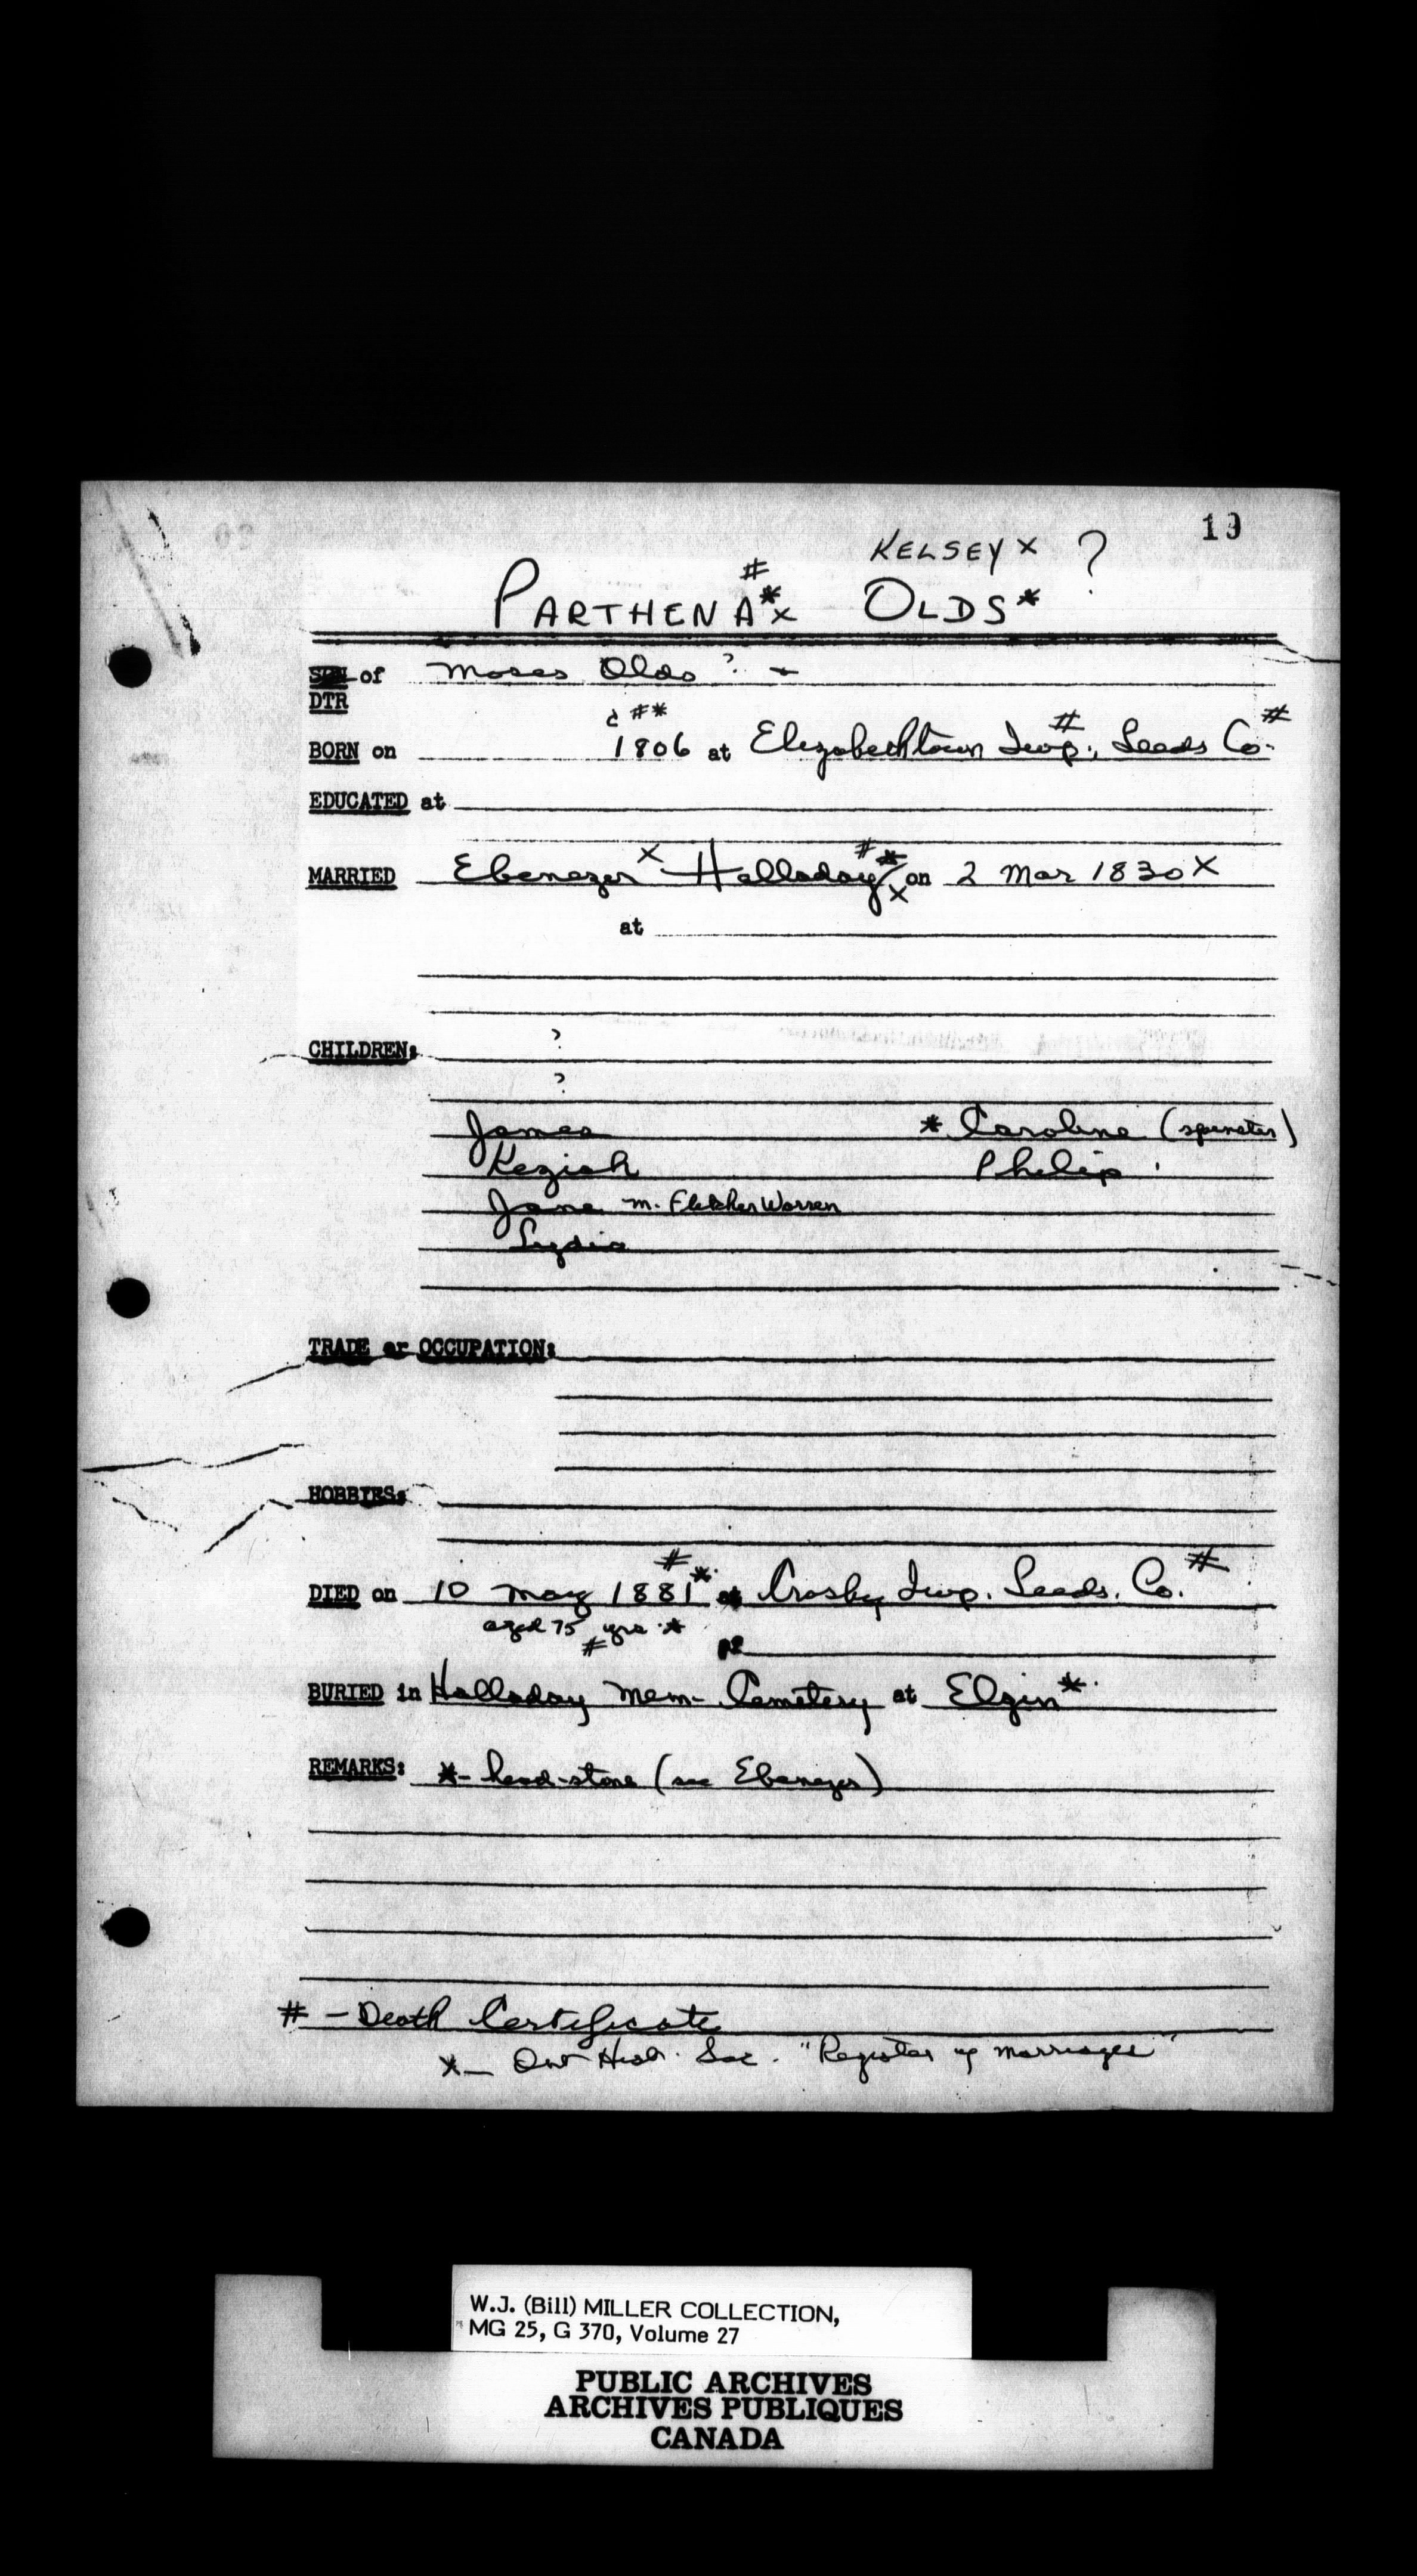 19
KELSEY x ?
PARTHENA # * x OLDS *
SON of Moses Olds ? -
DTR
c # *
BORN on 1806 at Elizabethtown Twp. # Leeds Co. #
EDUCATED at
MARRIED Ebenezer x Halladay # * x on 2 Mar 1830 x
at
CHILDREN: ?
?
James * Caroline (spinster)
Keziah Philip
Jane m. Fletcher Warren
Lydia
TRADE or OCCUPATION:
HOBBIES:
DIED on 10 May 1881 # * at Crosby Twp. Leeds. Co. #
aged 75 yrs *
#
BURIED in Halladay Mem- Cemetery at Elgin *
REMARKS: * - head-stone (see Ebenezer)
# - Death Certificate
x - Ont Hist. Soc. "Register of Marriages"
W.J. (Bill) MILLER COLLECTION,
MG 25, G 370, Volume 27
PUBLIC ARCHIVES
ARCHIVES PUBLIQUES
CANADA